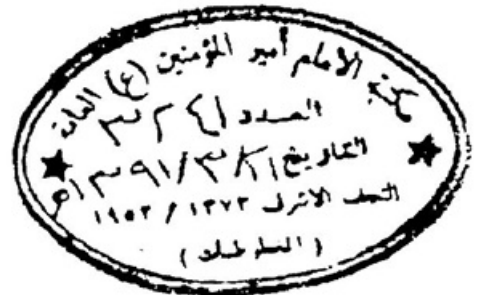 مكتبة الامام أمير المؤمنين (ع) العامة
العدد ٣٢٤١
التاريخ ٢١/٣/١٣٩١ھ
النجف الاشرف ١٣٧٣ / ١٩٥٣